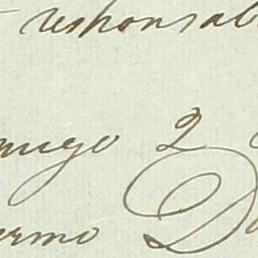 responsab
migo 2
ermo D